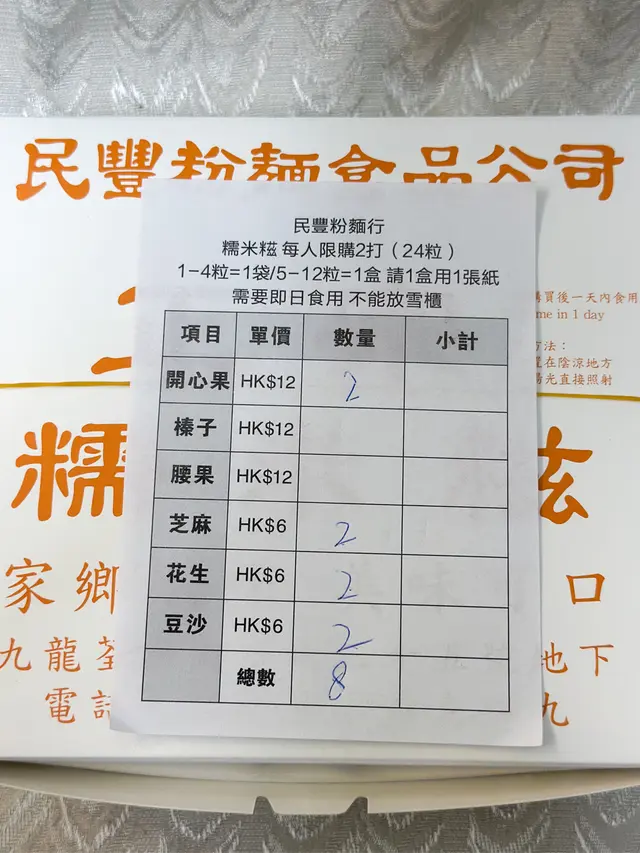 民豐粉麵食品公司
民豐粉麵行
糯米糍 每人限購2打（24粒）
1-4粒=1袋/5-12粒=1盒 請1盒用1張紙
需要即日食用 不能放雪櫃
項目 單價 數量 小計
開心果 HK$12 2
榛子 HK$12
腰果 HK$12
芝麻 HK$6 2
花生 HK$6 2
豆沙 HK$6 2
總數 8
購買後一天內食用
me in 1 day
方法：
置在陰涼地方
陽光直接照射
糯
家鄉 口
九龍荃 地下
電話 九